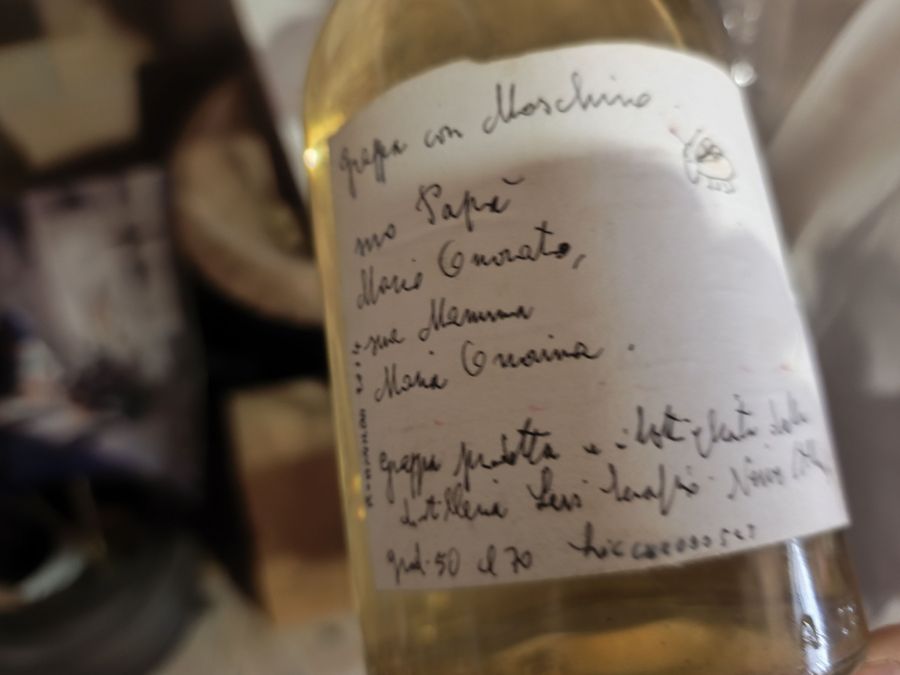 grappa con Moschino
mo Papà
Mario Onorato,
sua Mamma
Maria Onorina.
grappa prodotta e imbottigliata dalla
distilleria Levi Serafino. Neive
grad. 50 cl 70